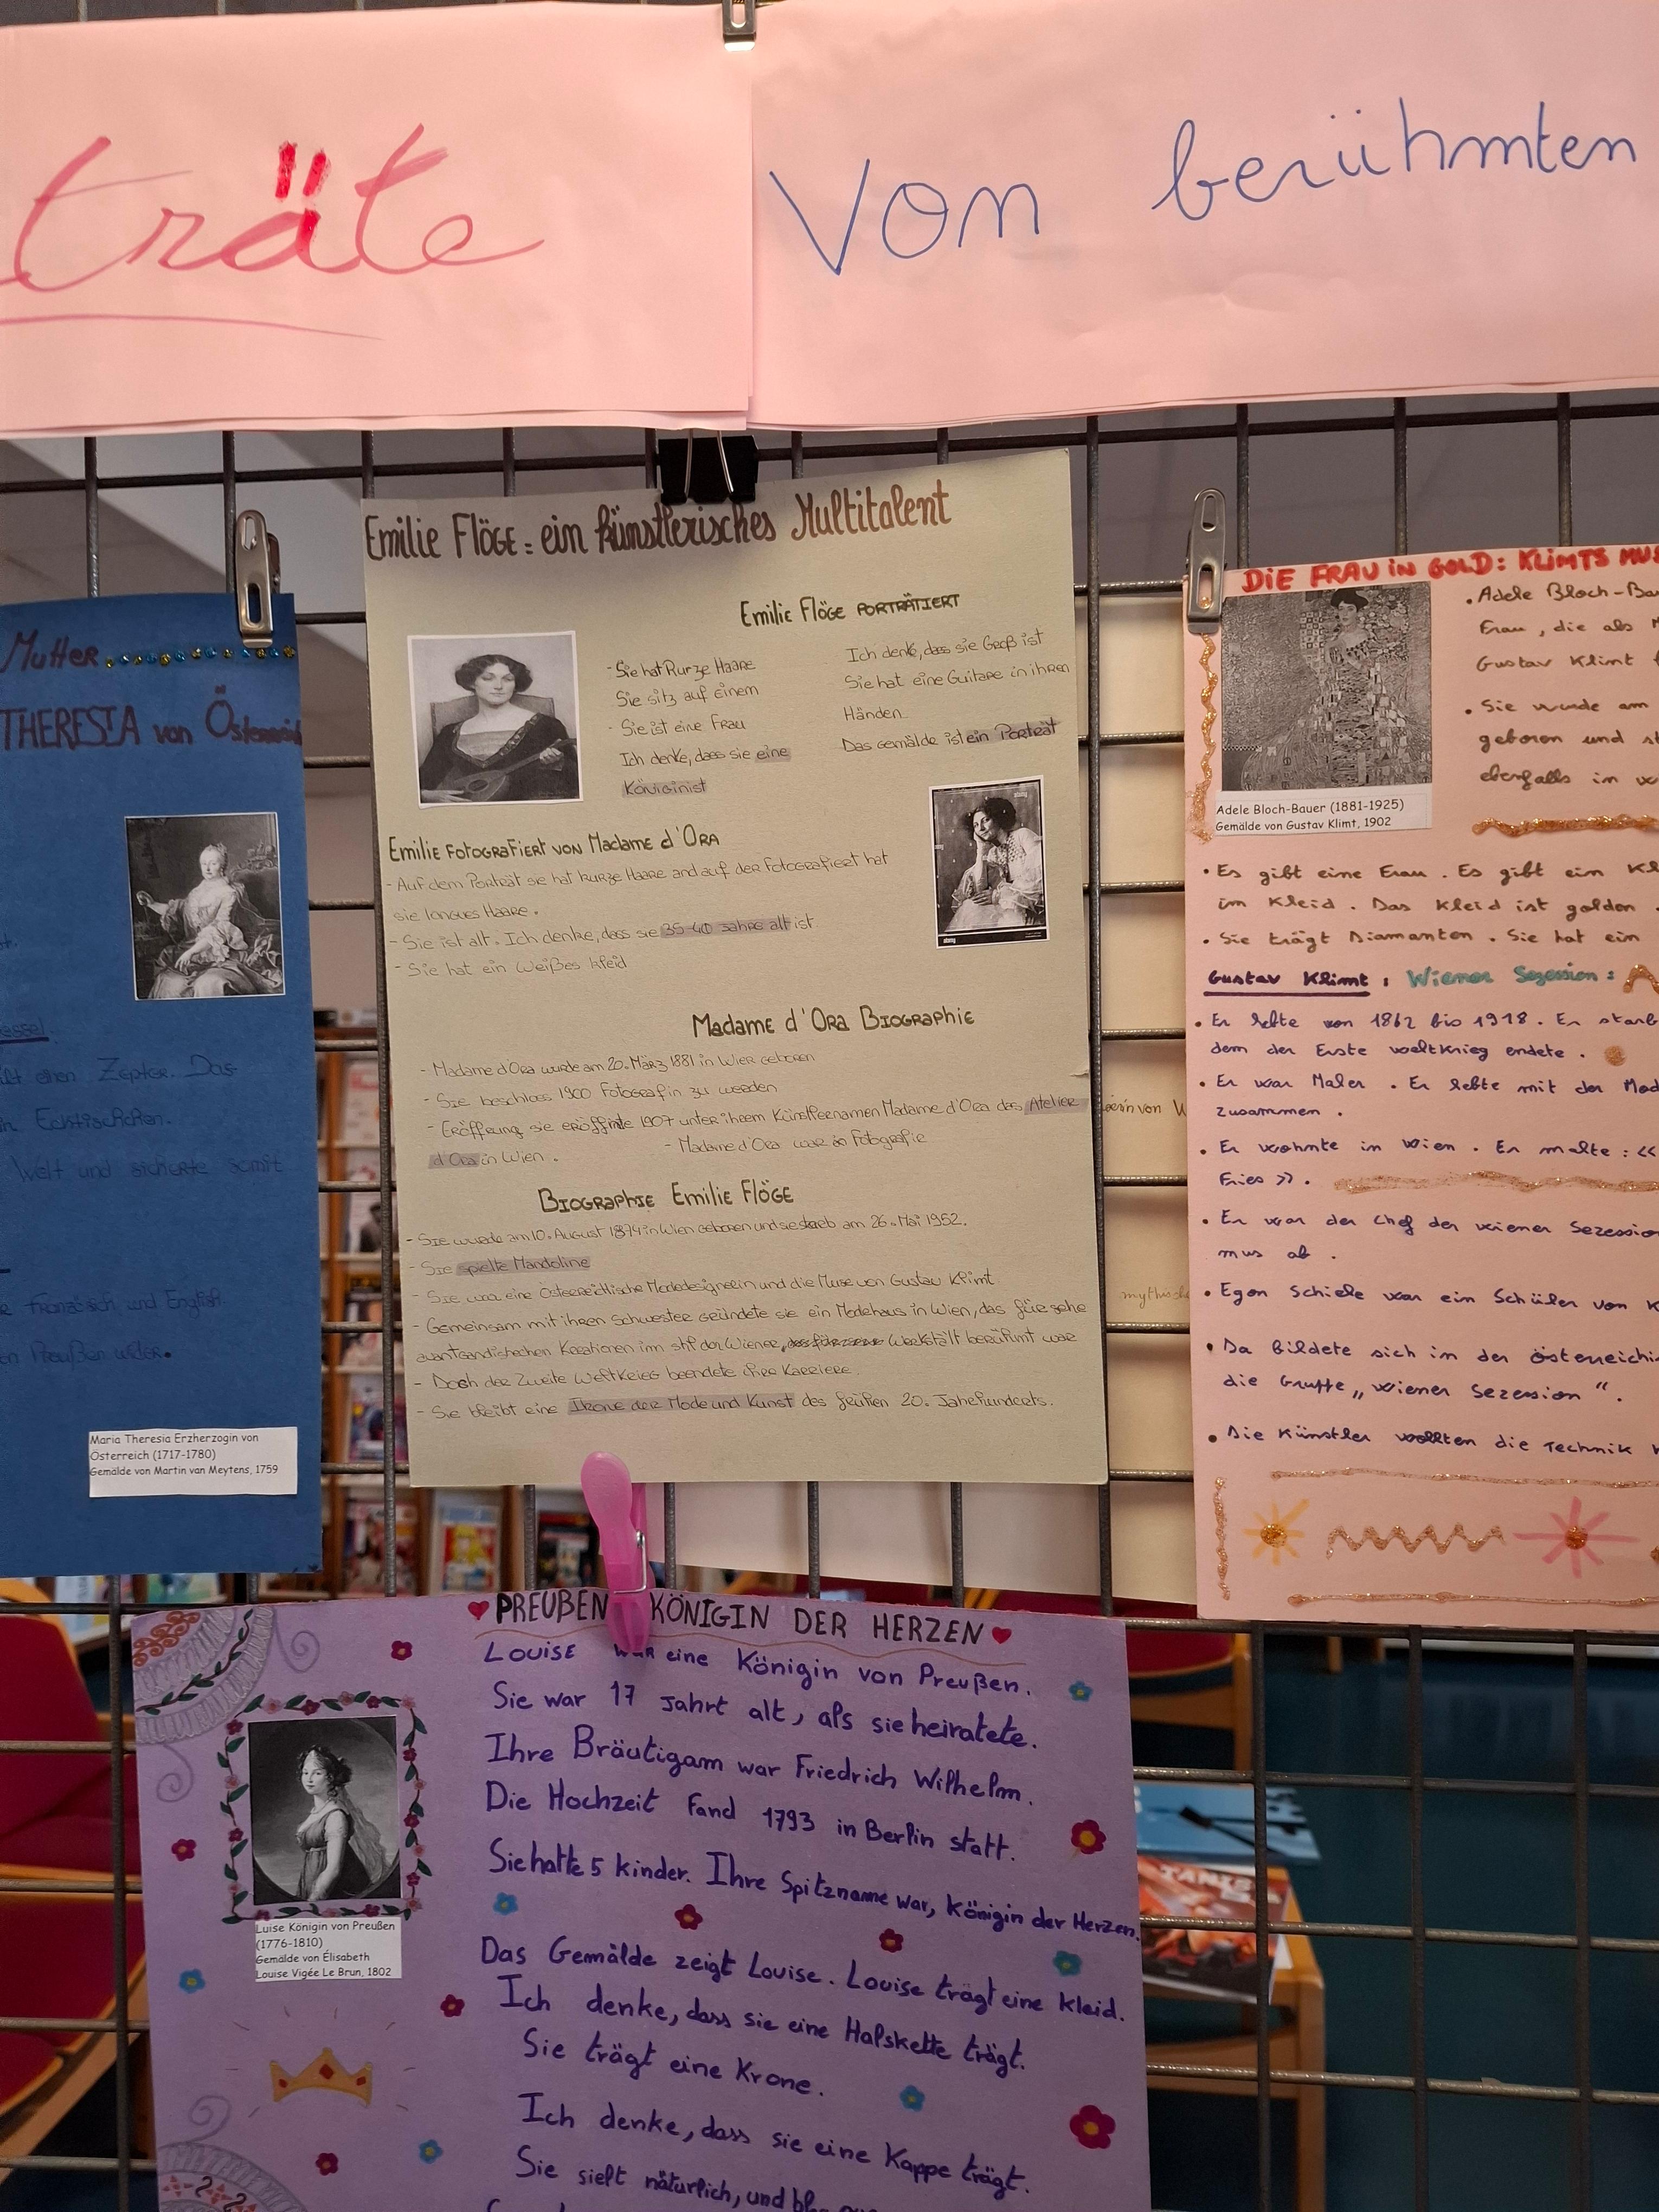 träte
Von berühmten
Mutter
THERESIA von Österreich
Zepter. Das
Welt und sicherte somit
Französisch und English
Preußen wider.
Maria Theresia Erzherzogin von
Österreich (1717-1780)
Gemälde von Martin van Meytens, 1759
Emilie Flöge = ein künstlerisches Multitalent
Emilie Flöge PORTRÄTIERT
- Sie hat kurze Haare
Sie sitz auf einem
- Sie ist eine Frau
Ich denke, dass sie eine
Königinist
Ich denke, dass sie Groß ist
Sie hat eine Guitare in ihren
Händen
Das Gemälde ist ein Porträt
Emilie Fotografiert von Madame d'Ora
- Auf dem Porträt sie hat kurze Haare and auf der Fotografiert hat
sie langues Haare.
- Sie ist alt. Ich denke, dass sie 35-40 Jahre alt ist
- Sie hat ein Weißes kleid
Madame d'Ora Biographie
- Madame d'Ora wurde am 20. März 1881 in Wier geboren
- Sie beschloss 1900 Fotografin zu werden
- Eröffnung sie eröffnete 1907 unter ihrem Künstlernamen Madame d'Ora das Atelier
d'Ora in Wien.
- Madame d'Ora war in Fotografie
Biographie Emilie Flöge
- Sie wurde am 10. August 1874 in Wien geboren und sie starb am 26. Mai 1952.
- Sie spielte Mandoline
- Sie war eine Österreichische Modedesignerin und die Muse von Gustav Klimt
- Gemeinsam mit ihren Schwester gründete sie ein Modehaus in Wien, das für sehe
avantgandishechen Kreationen imm stil der Wiener Werkstält berühmt war
- Doch der Zweite Weltkrieg beendete ihre Karriere.
- Sie bleibt eine Ikone der Mode und Kunst des frühen 20. Jahrhunderts.
von W
DIE FRAU IN GOLD: KLIMTS MUS
• Adele Bloch-Ba
Frau, die als
Gustav Klimt
• Sie wurde am
geboren und
ebenfalls in
Adele Bloch-Bauer (1881-1925)
Gemälde von Gustav Klimt, 1902
• Es gibt eine Frau. Es gibt ein
im Kleid. Das Kleid ist golden.
• Sie trägt Diamanten. Sie hat ein
Gustav Klimt : Wiener Sezession :
• Er lebte von 1862 bis 1918. Er starb
dem der Erste weltkrieg endete.
• Er war Maler. Er lebte mit der Mod
zusammen.
• Er wohnte in Wien. Er malte : «
Fries ».
• Er war der Chef der wiener Sezession
mus ab.
• Egon Schiele war ein Schüler von K
• Da bildete sich in der österreichi
die Gruppe „Wiener Sezession“.
• Die Künstler wollten die Technik
PREUßEN KÖNIGIN DER HERZEN
Louise war eine Königin von Preußen.
Sie war 17 Jahrt alt, als sie heiratete.
Ihre Bräutigam war Friedrich Wilhelm.
Die Hochzeit Fand 1793 in Berlin statt.
Sie hatte 5 kinder. Ihre Spitzname war, Königin der Herzen.
Luise Königin von Preußen
(1776-1810)
Gemälde von Élisabeth
Louise Vigée Le Brun, 1802
Das Gemälde zeigt Louise. Louise trägt eine Kleid.
Ich denke, dass sie eine Halskette trägt.
Sie trägt eine Krone.
Ich denke, dass sie eine Kappe trägt.
Sie sieht nätürlich, und